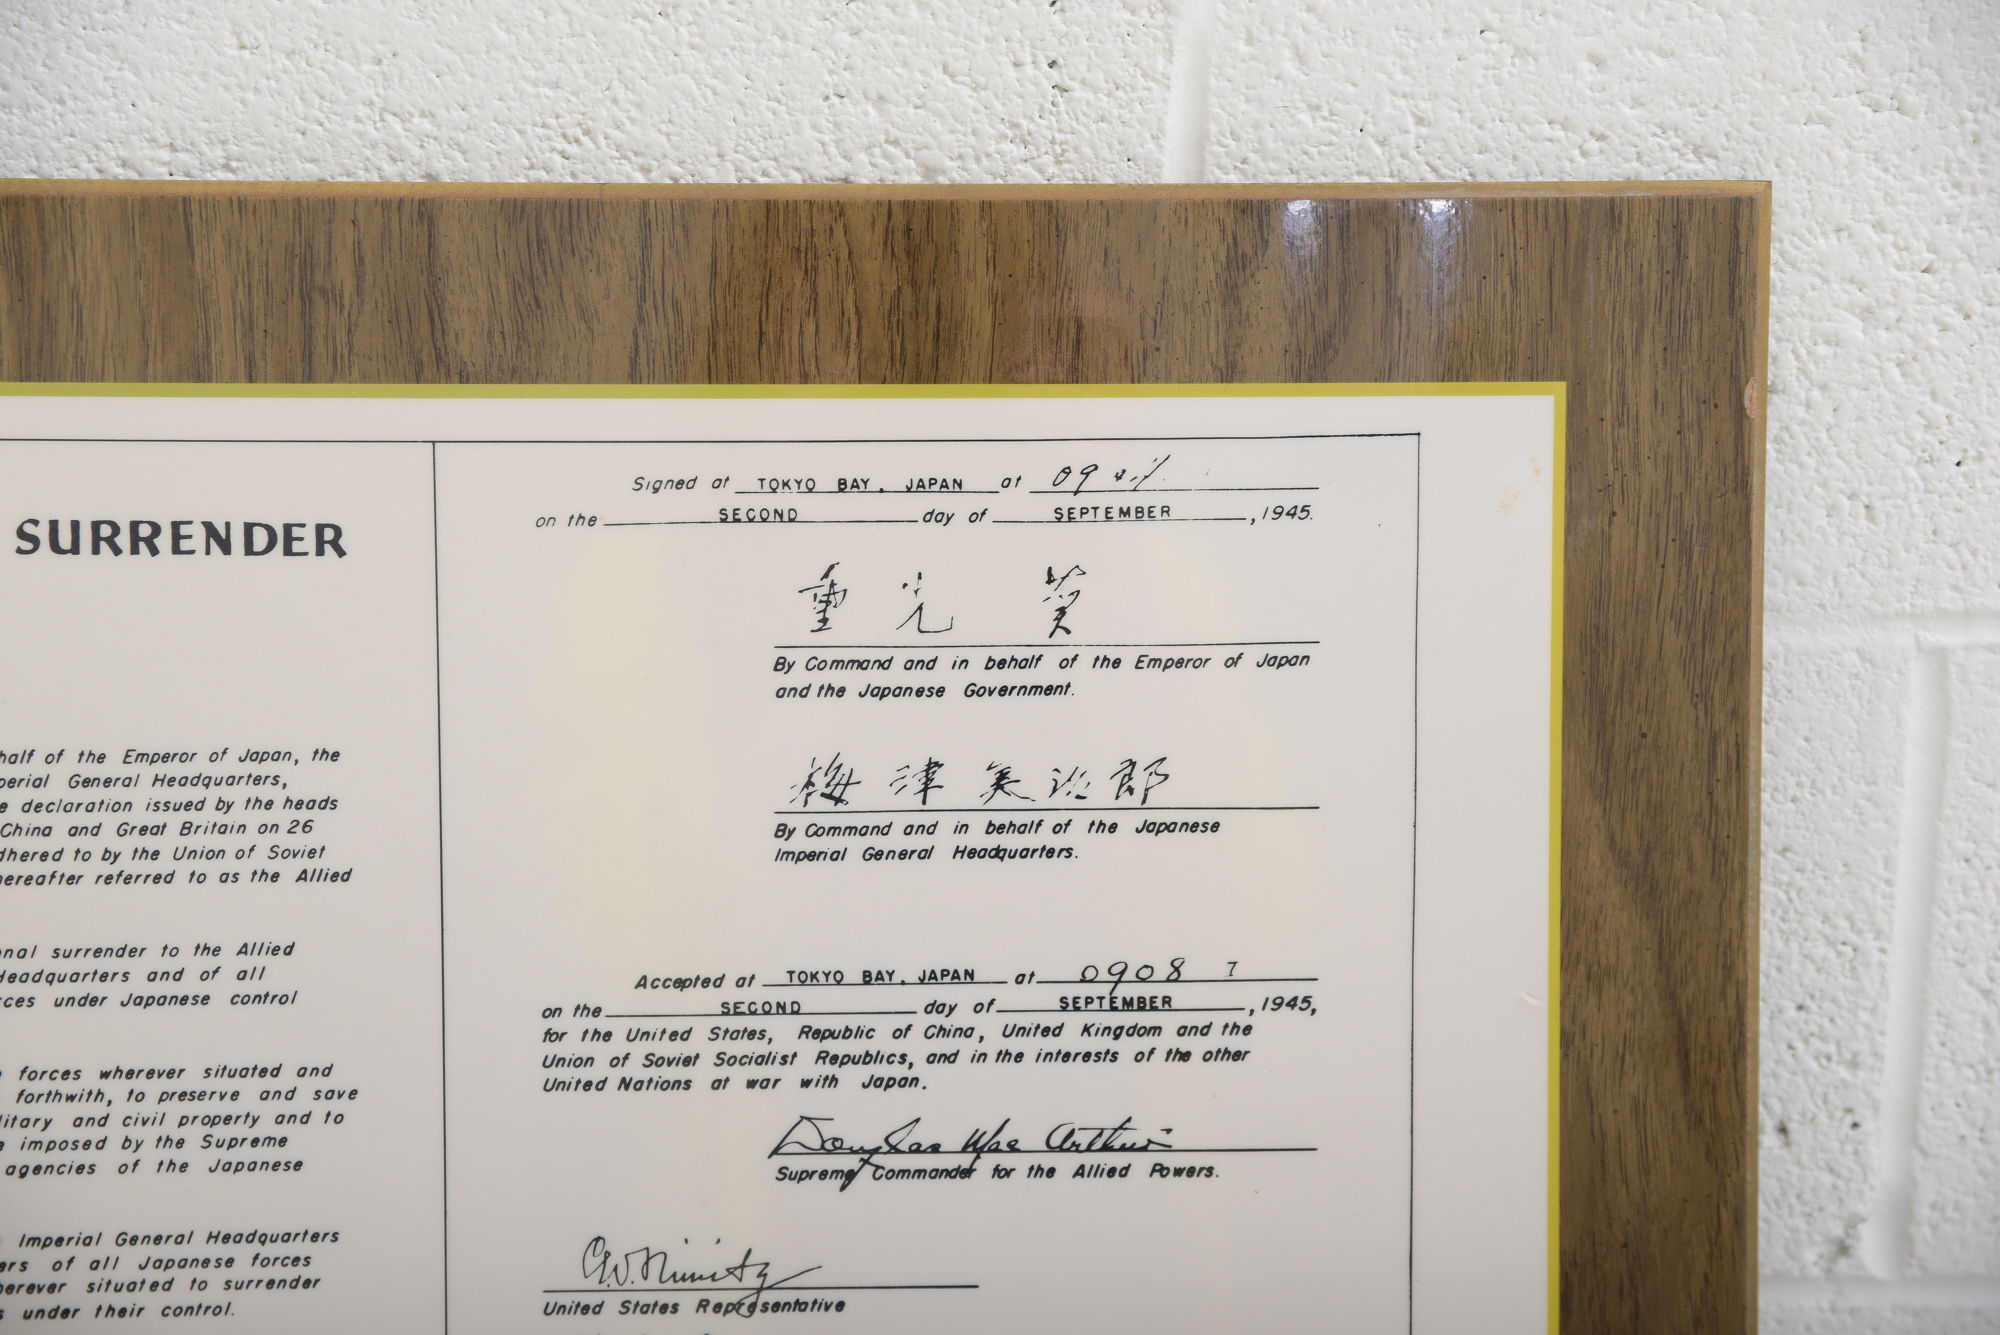 SURRENDER
half of the Emperor of Japan, the
perial General Headquarters,
e declaration issued by the heads
China and Great Britain on 26
dhered to by the Union of Soviet
hereafter referred to as the Allied
onal surrender to the Allied
Headquarters and of all
rces under Japanese control
forces wherever situated and
forthwith, to preserve and save
litary and civil property and to
e imposed by the Supreme
agencies of the Japanese
Imperial General Headquarters
ers of all Japanese forces
herever situated to surrender
s under their control.
Signed at TOKYO BAY, JAPAN at 09
on the SECOND day of SEPTEMBER, 1945.
重光 葵
By Command and in behalf of the Emperor of Japan
and the Japanese Government.
梅津美治郎
By Command and in behalf of the Japanese
Imperial General Headquarters.
Accepted at TOKYO BAY, JAPAN at 0908 I
on the SECOND day of SEPTEMBER, 1945,
for the United States, Republic of China, United Kingdom and the
Union of Soviet Socialist Republics, and in the interests of the other
United Nations at war with Japan.
Douglas MacArthur
Supreme Commander for the Allied Powers.
C.W. Nimitz
United States Representative